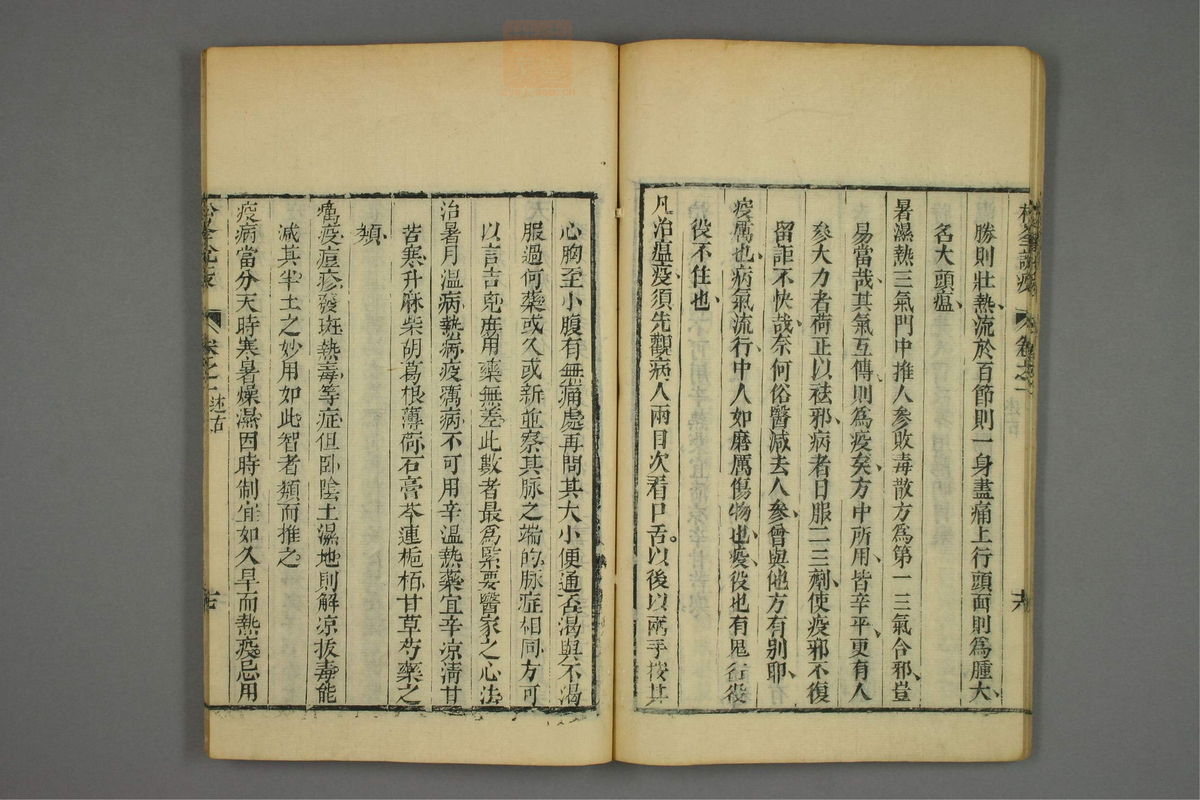 松峯說疫
卷之一
述古
勝則壯熱流於百節則一身盡痛上行頭面則爲腫大
名大頭瘟
暑濕熱三氣門中推人參敗毒散方爲第一三氣合邪豈
易當哉其氣互傳則爲疫矣方中所用皆辛平更有人
參大力者荷正以祛邪病者日服二三劑使疫邪不復
留詎不快哉奈何俗醫減去人參曾與他方有别耶
疫厲也病氣流行中人如磨厲傷物也疫役也有鬼行役
役不住也
凡治瘟疫須先觀病人兩目次看口舌。以後以兩手按其
心胸至小腹有無痛處再問其大小便通否渴與不渴
服過何藥或久或新並察其脉之端的脉症相同方可
以言吉兇庶用藥無差此數者最爲緊要醫家之心法
治暑月溫病熱病疫癘病不可用辛溫熱藥宜辛凉淸甘
苦寒升麻柴胡葛根薄荷石膏芩連梔栢甘草芍藥之
類
癘疫痘疹發斑熱毒等症但卧陰土濕地則解凉拔毒能
減其半土之妙用如此智者類而推之
疫病當分天時寒暑燥濕因時制宜如久旱而熱疫忌用
松峯說疫
卷之一
述古